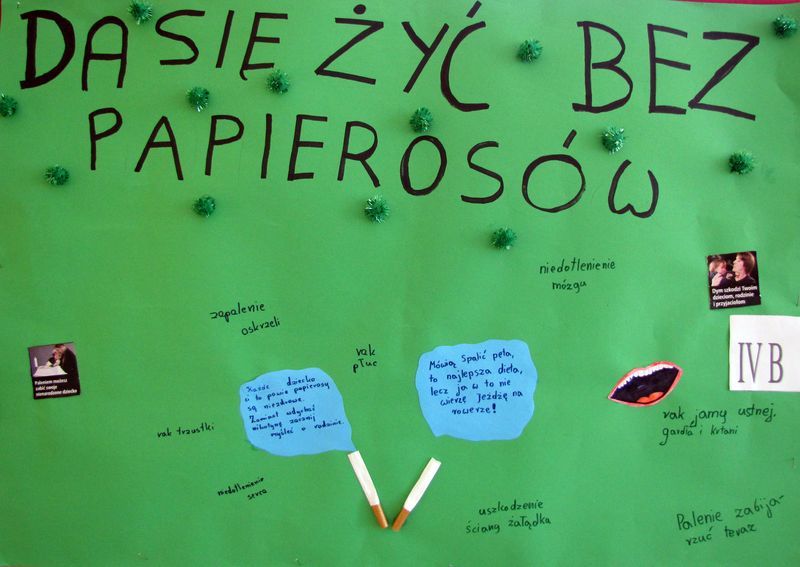 DA SIĘ ŻYĆ BEZ
PAPIEROSÓW
niedotlenienie
mózgu
zapalenie
oskrzeli
rak
płuc
Dym szkodzi Twoim
dzieciom, rodzinie
i przyjaciołom
IV B
Paleniem możesz
zabić swoje
nienarodzone dziecko
Każde dziecko
ci to powie papierosy
są niezdrowe.
Zamiast wdychać
nikotynę zacznij
myśleć o rodzinie.
Mówią spalić peta,
to najlepsza dieta,
lecz ja w to nie
wierzę Jeżdżę na
rowerze!
rak jamy ustnej,
gardła i krtani
rak trzustki
niedotlenienie
serca
uszkodzenie
ścian żołądka
Palenie zabija-
rzuć teraz